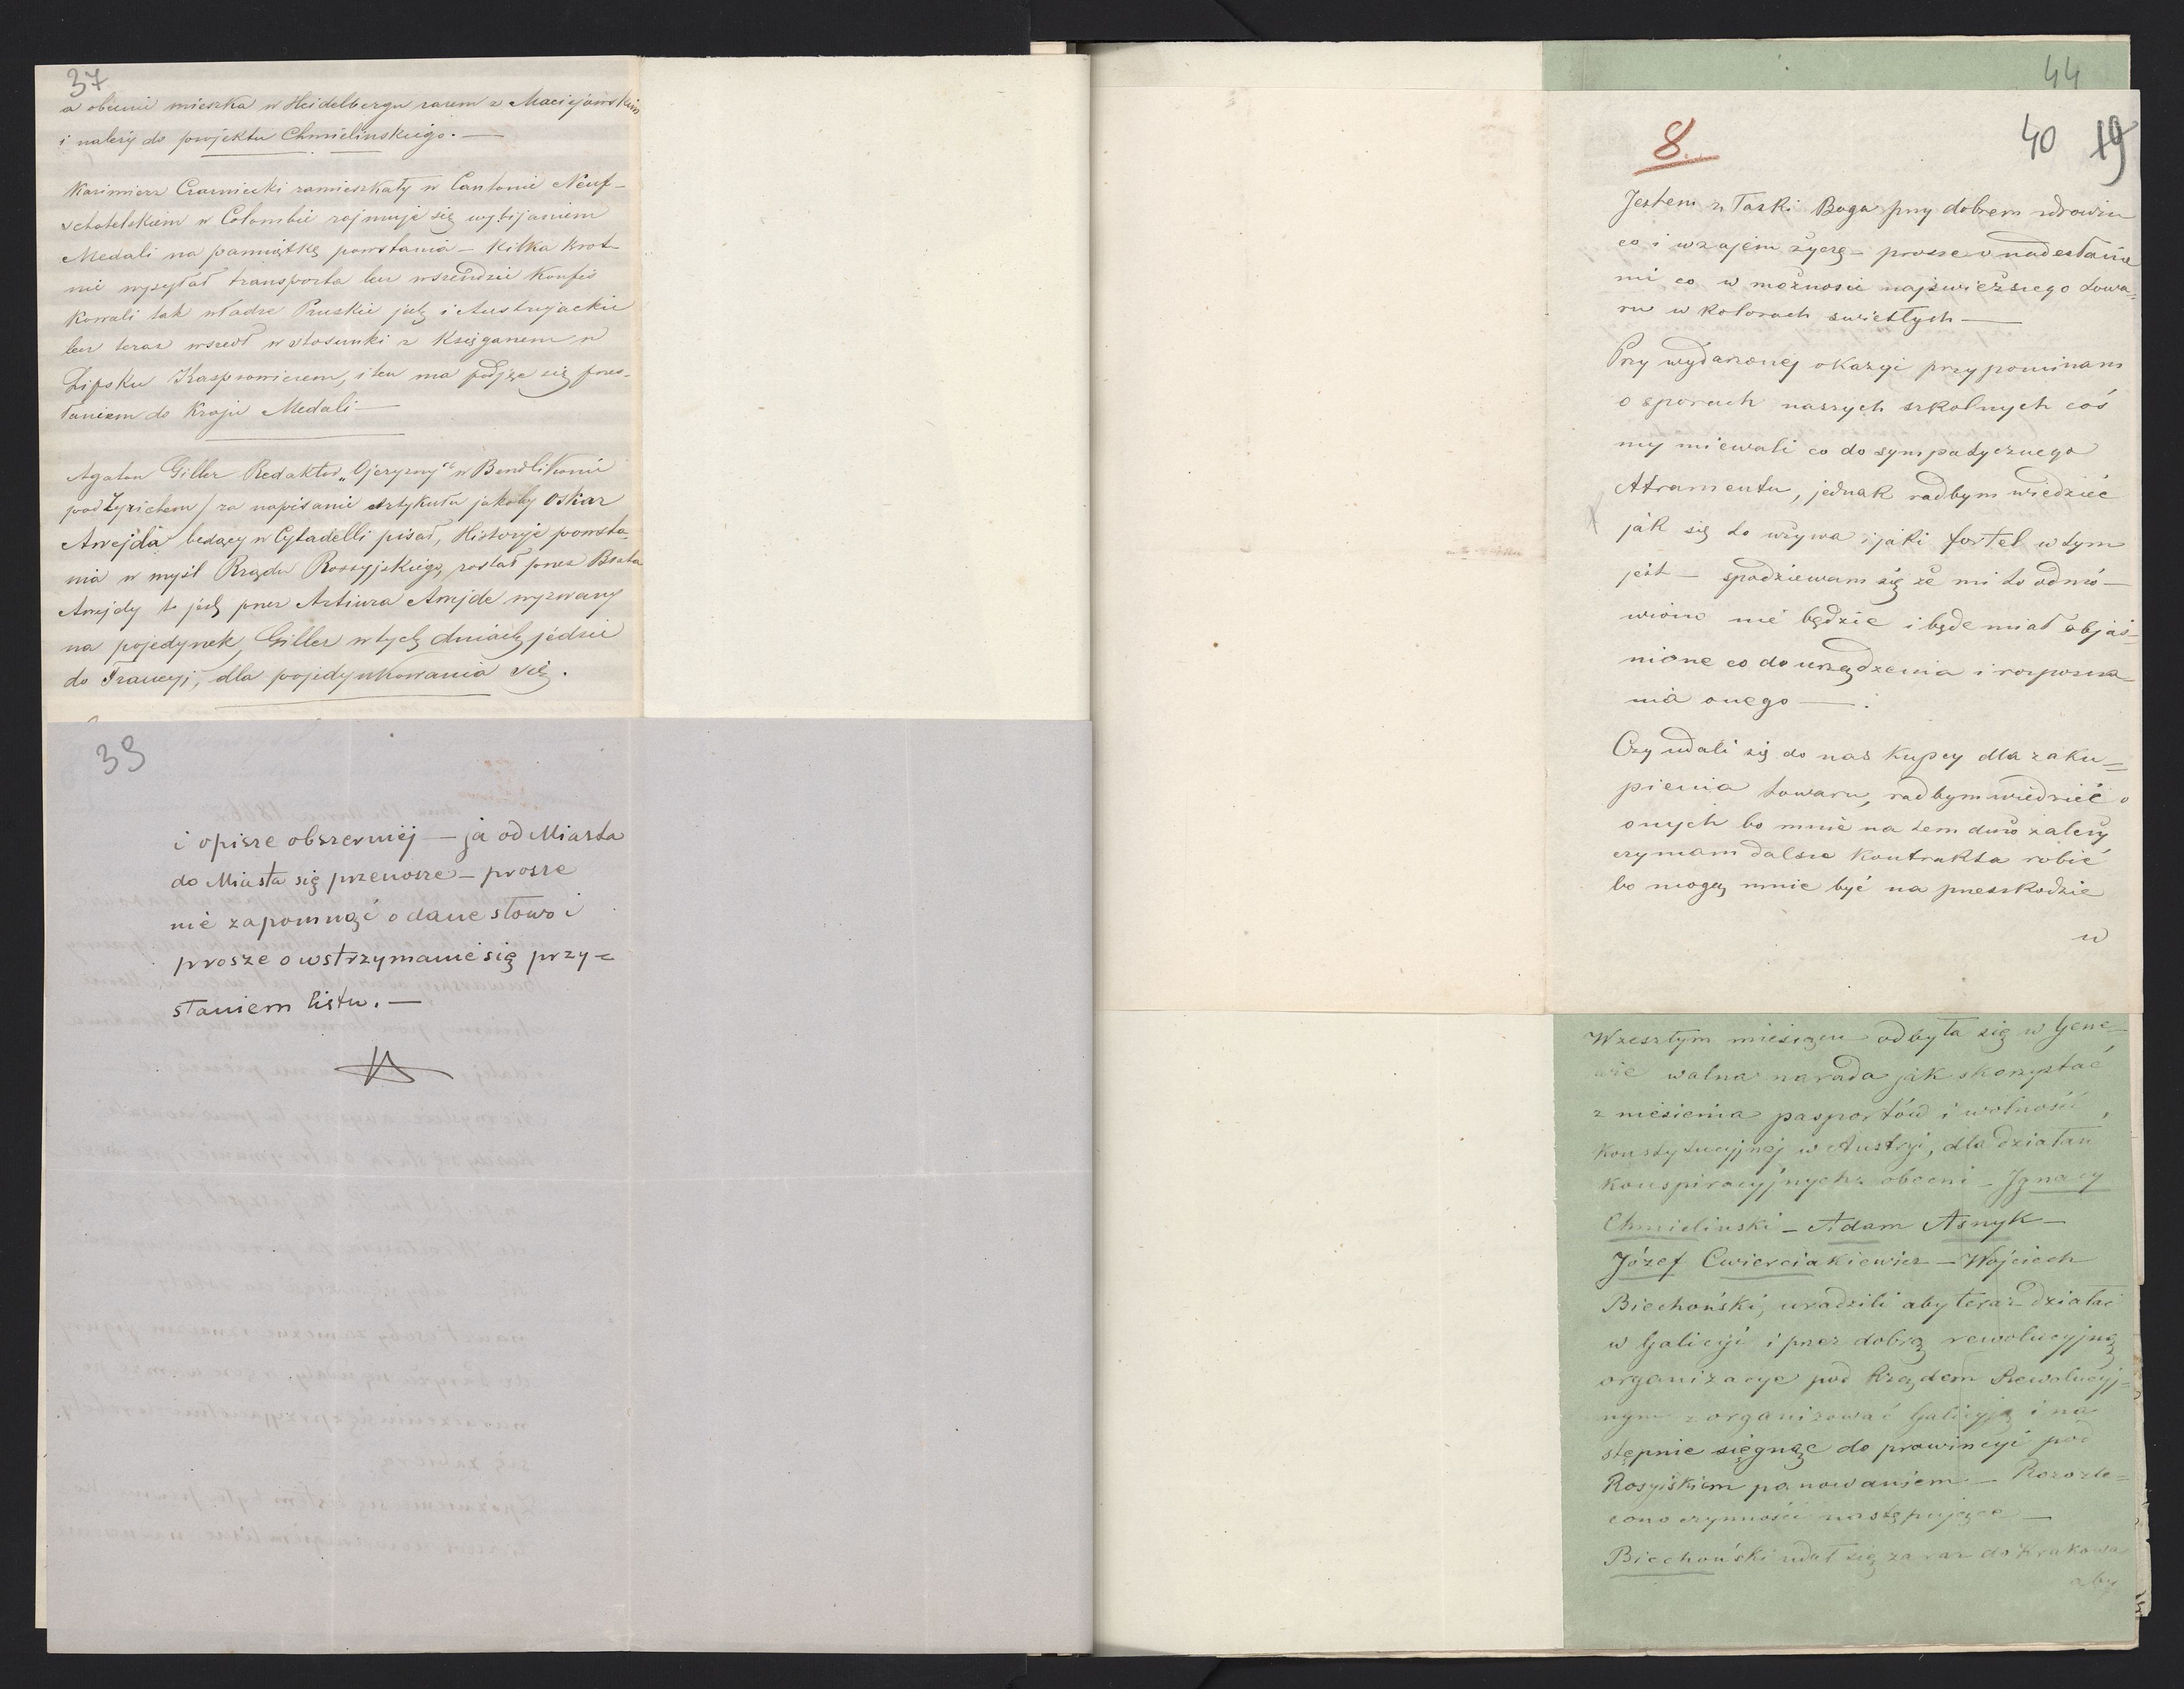 37
a obecnie mieszka w Heidelbergu razem z Maciejowskim
i należy do projektu Chmielinskiego. —
Kazimierz Czarniecki zamieszkały w Cantonie Neuf-
schatelskiem w Colombie zajmuje się wybijaniem
Medali na pamiątkę powstania — kilka krot
nie wysyłał transporta lecz wszędzie konfis
kowali tak władze Pruskie jak i Austryjackie
lecz teraz wszedł w stosunki z Księgarzem w
Lipsku Kasprowiczem, i ten ma podjąc się przes-
łaniem do Kraju Medali —
Agaton Giller Redaktor „Ojczyzny" w Bendlikonie
pod Zyrichem / za napisanie artykułu jakoby Oskar
Awejda będący w Cytadelli pisał, Historyje powsta-
nia w myśl Rządu Rossyjskiego, został przez Brata
Awejdy to jest przez Artiura Awejde wyzwany
na pojedynek, Giller w tych dniach jedzie
do Francyi, dla pojedynkowania się.
39
i opisze obszerniej — ja od Miasta
do Miasta się przenosze — prosze
nie zapomnąć o dane słowo i
prosze o wstrzymanie się przy-
słaniem listu. —
44
8.
40 19
Jestem z Łaski Boga przy dobrem zdrowiu
co i wzajem życzę — prosze o nadesłanie
mi co w możnosci najswieższego towa=
ru w kolorach swietłych —
Przy wydarzonej okazyi przypominam
o sporach naszych szkolnych coś
my miewali co do sympatycznego
Atramentu, jednak radbym wiedzieć
jak się to używa i jaki fortel w tym
jest — spodziewam się że mi to odmó-
wiono nie będzie i będe miał objaś-
nione co do urządzenia i rozpozna-
nia onego — .
Czy udali się do nas kupcy dla zaku=
pienia towaru, radbym wiedzieć o
onych bo mnie na tem dużo zależy
czy mam dalsze kontrakta robić
bo mogą mnie być na przeszkodzie
w
W zeszłym miesiącu odbyła się w Gene-
wie walna narada jak skorzystać
z niesienia pasportów i wolności,
konstytucyjnej w Austryi, dla działań
konspiracyjnych obecni — Ignacy
Chmielinski — Adam Asnyk —
Józef Cwierciakiewicz — Wojciech
Biechoński, uradzili aby teraz działać
w Galicyi i przez dobrą rewolucyjną
organizacye pod Rządem Rewolucyj=
nym zorganizować Galicyją i na
stępnie sięgnąc do prowincyi pod
Rosyiskiem panowaniem — Rozozle=
cono czynności następujące —
Biechoński udał się zaraz do Krakowa
aby